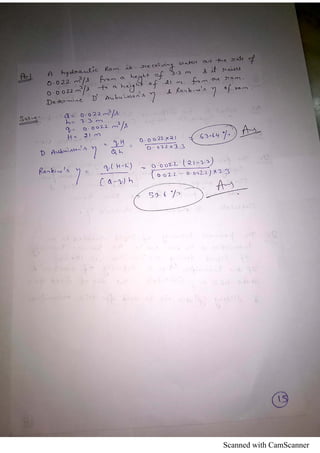 A hydraulic Ram is receiving water at the rate of
0.022 m³/s from a height of 3.3 m & it raises
0.0022 m³/s to a height of 21 m from the ram.
Determine D' Aubuisson's η & Rankine's η of ram
Q = 0.022 m³/s
h = 3.3 m
q = 0.0022 m³/s
H = 21 m
D Aubuisson's η = qH / Qh = 0.0022×21 / 0.022×3.3 = 63.64 % Ans
Rankine's η = q(H-h) / (Q-q)h = 0.0022 (21-3.3) / (0.022 - 0.0022)×3.3
= 59.6 % Ans
15
Scanned with CamScanner